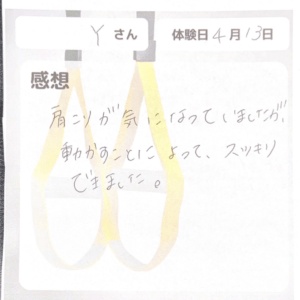 Y さん 体験日 4 月 13 日
感想
肩こりが気になっていましたが、
動かすことによって、スッキリ
できました。